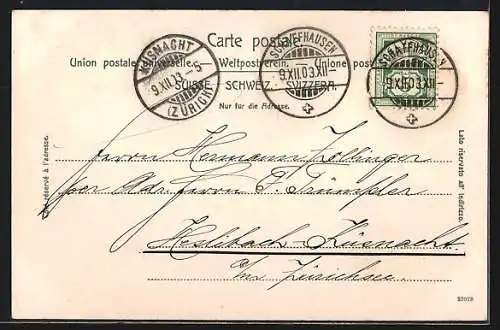 Carte postale.
Union postale universelle. Weltpostverein. Unione postale
SUISSE. SCHWEIZ. SVIZZERA.
Nur für die Adresse.
KÜSNACHT
9.XII.03.-5
(ZÜRICH)
SCHAFFHAUSEN
9.XII.03.XII-
SCHAFFHAUSEN
9.XII.03.XII-
Côté réservé à l'adresse.
Lato riservato all' indirizzo.
Herrn Hermann Zollinger
per Adr. Herrn F. Trümpler
Heslibach-Küsnacht
a/m Zürichsee.